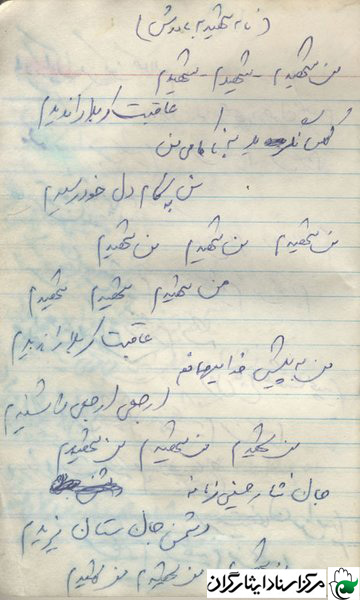 (نامه شهید به مادرش)
من شهیدم - شهیدم - شهیدم
عاقبت کربلا را ندیدم
کس نگرید به ناکامی من
من به کام دل خود رسیدم
من شهیدم من شهیدم من شهیدم
من شهیدم شهیدم شهیدم
عاقبت کربلا را ندیدم
من به پیش خدا میهمانم
ارجعی ارجعی را شنیدم
من شهیدم من شهیدم من شهیدم
جان نثار حسین زمانه
دشمن جان ستان یزیدم
من شهیدم من شهیدم من شهیدم
مرکز اسناد ایثارگران